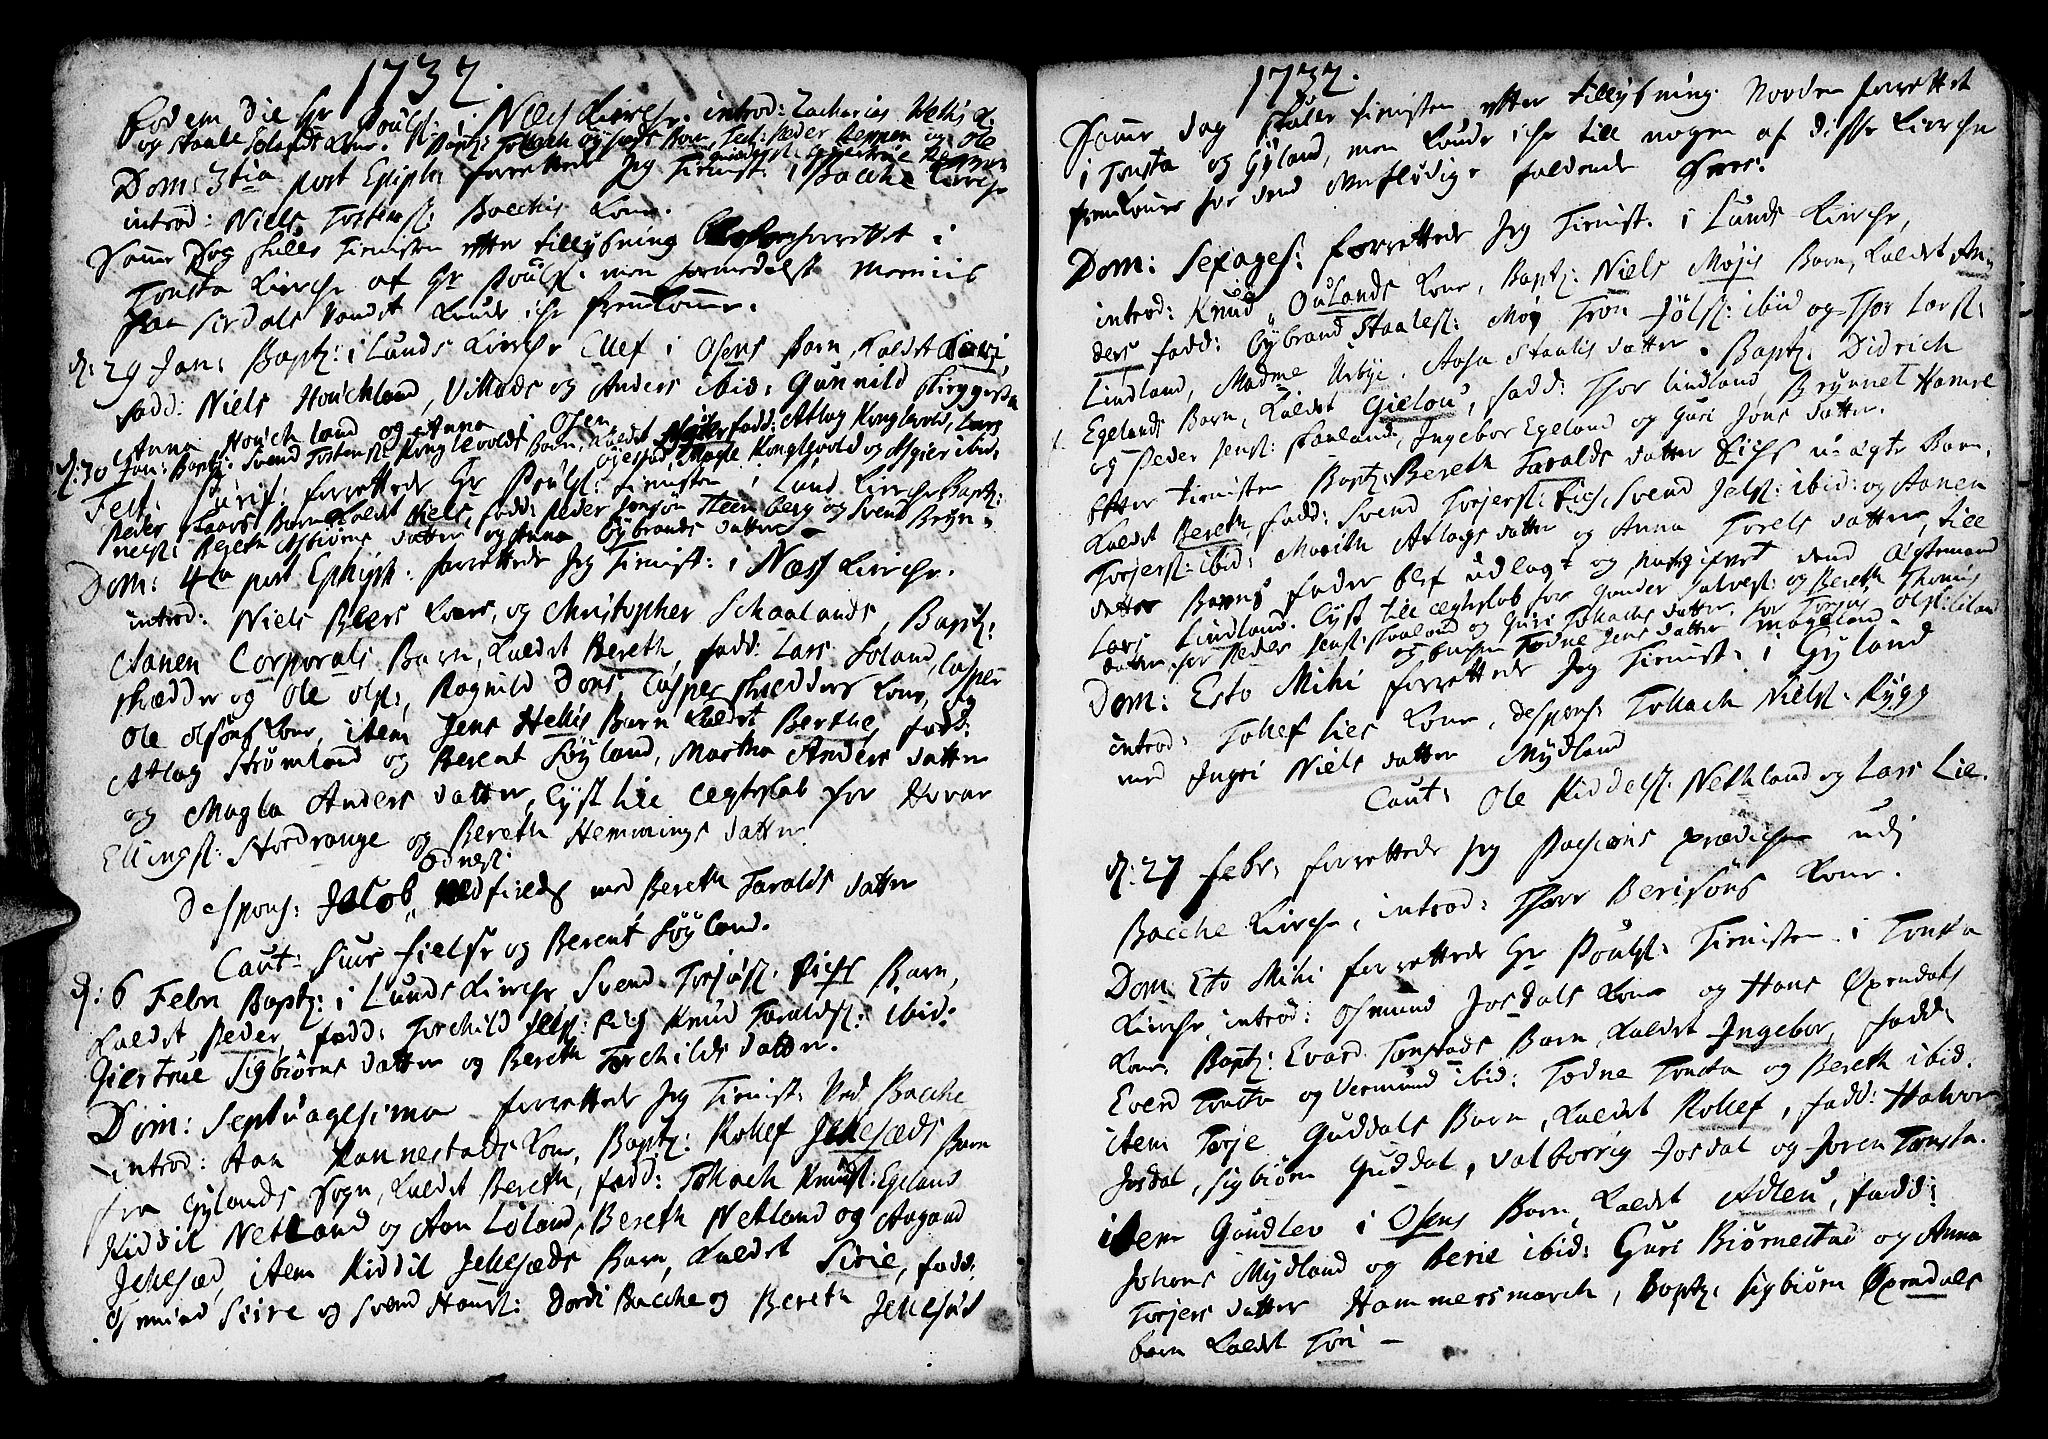 1732.
Eodem die Hr Poulss: i Næss Kirche introd: Zacharias Wehis K:
og Staale Kone. Bapt: Tollach Øysæds Barn, Fad: Peder og Ole
Dom: 3tia post Epiph: forrettede Jeg Tienist: i Bacche Kirche
introd: Niels Torkelss: Bacchis Kone.
Samme Dag skulle Tienisten efter tillysning forrettet i
Tonsta Kirche af Hr Poulss: men formedelst Meniis
paa Sirdals Vandet Kunde iche fremkomme.
d: 29 Jan: Baptz: i Lunds Kirche Ellef i Osens Barn, Kaldet
fadd: Niels Houchland, Villads og Anders ibid: Gunnild
Anna Houchland og Anna i Osen
d: 30 Jan: Baptz: Svend Tostenss: Konglevolds Barn, Kaldet fadd: Atlag Konglevold, Lars
Magle Konglevold og Asgier ibid:
Fest: Purif: forrettede Hr Poulss: Tienisten i Lund Kirche Baptz:
Peder Barn Kaldet Niels, fadd: Peder Jonsøn Steenberg og Svend Bryn-
nelss: Bereth Asbiørns datter og Anna Øybrands datter
Dom: 4ta post Epiph: forrettede Jeg Tienist: i Næss Kirche.
introd: Niels Kone, og Christopher Schaalands, Baptz:
Aanen Corporals Barn, Kaldet Bereth, fadd: Lars Soland, Casper
skrædder og Ole olss, Ragnild Dons, Casper skrædders Kone, og
Ole olsøns Kone, item Jens Hehis Barn Kaldet Berthe, fadd:
Atlag Strømland og Berent Søyland, Martha Anders datter
og Magla Anders datter, Lyst til ægteskab for Hovar
Ellingss: Stordrange og Bereth Hemmings datter
Odness:
Despons: Jacob med Bereth Taralds datter
Caut: Siur Fielse og Berent Søyland.
d: 6 Febr Baptz: i Lunds Kirche Svend Torjuss: Eichs Barn,
Kaldet Peder, fadd: Torchild Jelss: Eich Knud Taraldss: ibid:
Giertrue Sigbiørns datter og Bereth Torchilds datter.
Dom: Septuagesima forrettede Jeg Tienist: Ved Bacche
introd: Aan Rannestads Kone, Baptz: Rollef Jellesæds Barn
fra Gylands Sogn, Kaldet Bereth, fadd: Tollach Knudss: Egeland
Kiddil Netland og Aan Loland, Bereth Netland og Aagaad
Jellesæd, item Kiddil Jellesæds Barn, Kaldet Sirie, fadd:
Osmund Seire og Svend Hanss: Dordi Bacche og Bereth Jellesæd
1732.
Samme dag skulle tienisten efter tillysning Vorden forrettet
i Tonsta og Gyland, men Kunde iche till nogen af disse Kircher
fremkomme for dend overflødige faldende Snee:
Dom: Sexages: forrettede Jeg Tienist: i Lunds Kirche,
introd: Knud Oulands Kone, Baptz: Niels Mojis Barn, Kaldet An-
ders fadd: Øybrand Staaless: Moy Tron Jølss: ibid og Thor Larss:
Lindland, Madme Urbye, Aasa Staalis datter. Baptz: Didrich
Egelands Barn, Kaldet Gielou, fadd: Thor Lindland Brynnel Hamre
og Peder Jenss: Skaaland, Ingebor Egeland og Guri Jons datter.
Efter tienisten Baptz: Bereth Taralds datter Eichs u-ægte Barn,
Kaldet Bereth, fadd: Svend Torjerss: Eich, Svend Jelss: ibid: og Aanen
Torjerss: ibid: Marith Atlags datter og Anna Torels datter, till
dette Barns fader blef udlagt og Navngifvet dend Ægtemand
Lars Lindland. Lyst till ægteskab for Gunder Salvess: og Bereth Thomis
datter, for Peder Jenss: Skaaland og Guri Tollachs datter, for Torjus Olss: Eiland
og Todne Jens datter Mageland
Dom: Esto Mihi forrettede Jeg Tienist: i Gyland
introd: Tollef Lies Kone, despons: Tollach Nielss: Rygg
med Ingri Niels datter Mydland
Caut: Ole Kiddelss: Nethland og Lars Lie.
d: 27 Febr, forrettede Jeg Passions prædichen udi
Bacche Kirche, introd: Thore Berisøns Kone.
Dom Esto Mihi forrettede Hr Poulss: Tienisten i Tonsta
Kirche, introd: Osmund Josdals Kone og Hans Øxendals
Kone, Baptz: Evard Tonstads Barn Kaldet Ingebor, fadd:
Everd Tonsta og Vermund ibid: Todne Tonsta og Bereth ibid.
item Torje Guddals Barn, Kaldet Rollef, fadd: Halvor
Josdal, Sigbiørn Guddal, Valborrig Josdal og Joren Tonsta.
item Gundlev i Osens Barn, Kaldet Adleu, fadd:
Johans Mydland og Berie ibid: Guri Biørnestad og Anna
Torjers datter Hammersmarch, Baptz: Sigbiørn Øxendals
barn Kaldet Tori –